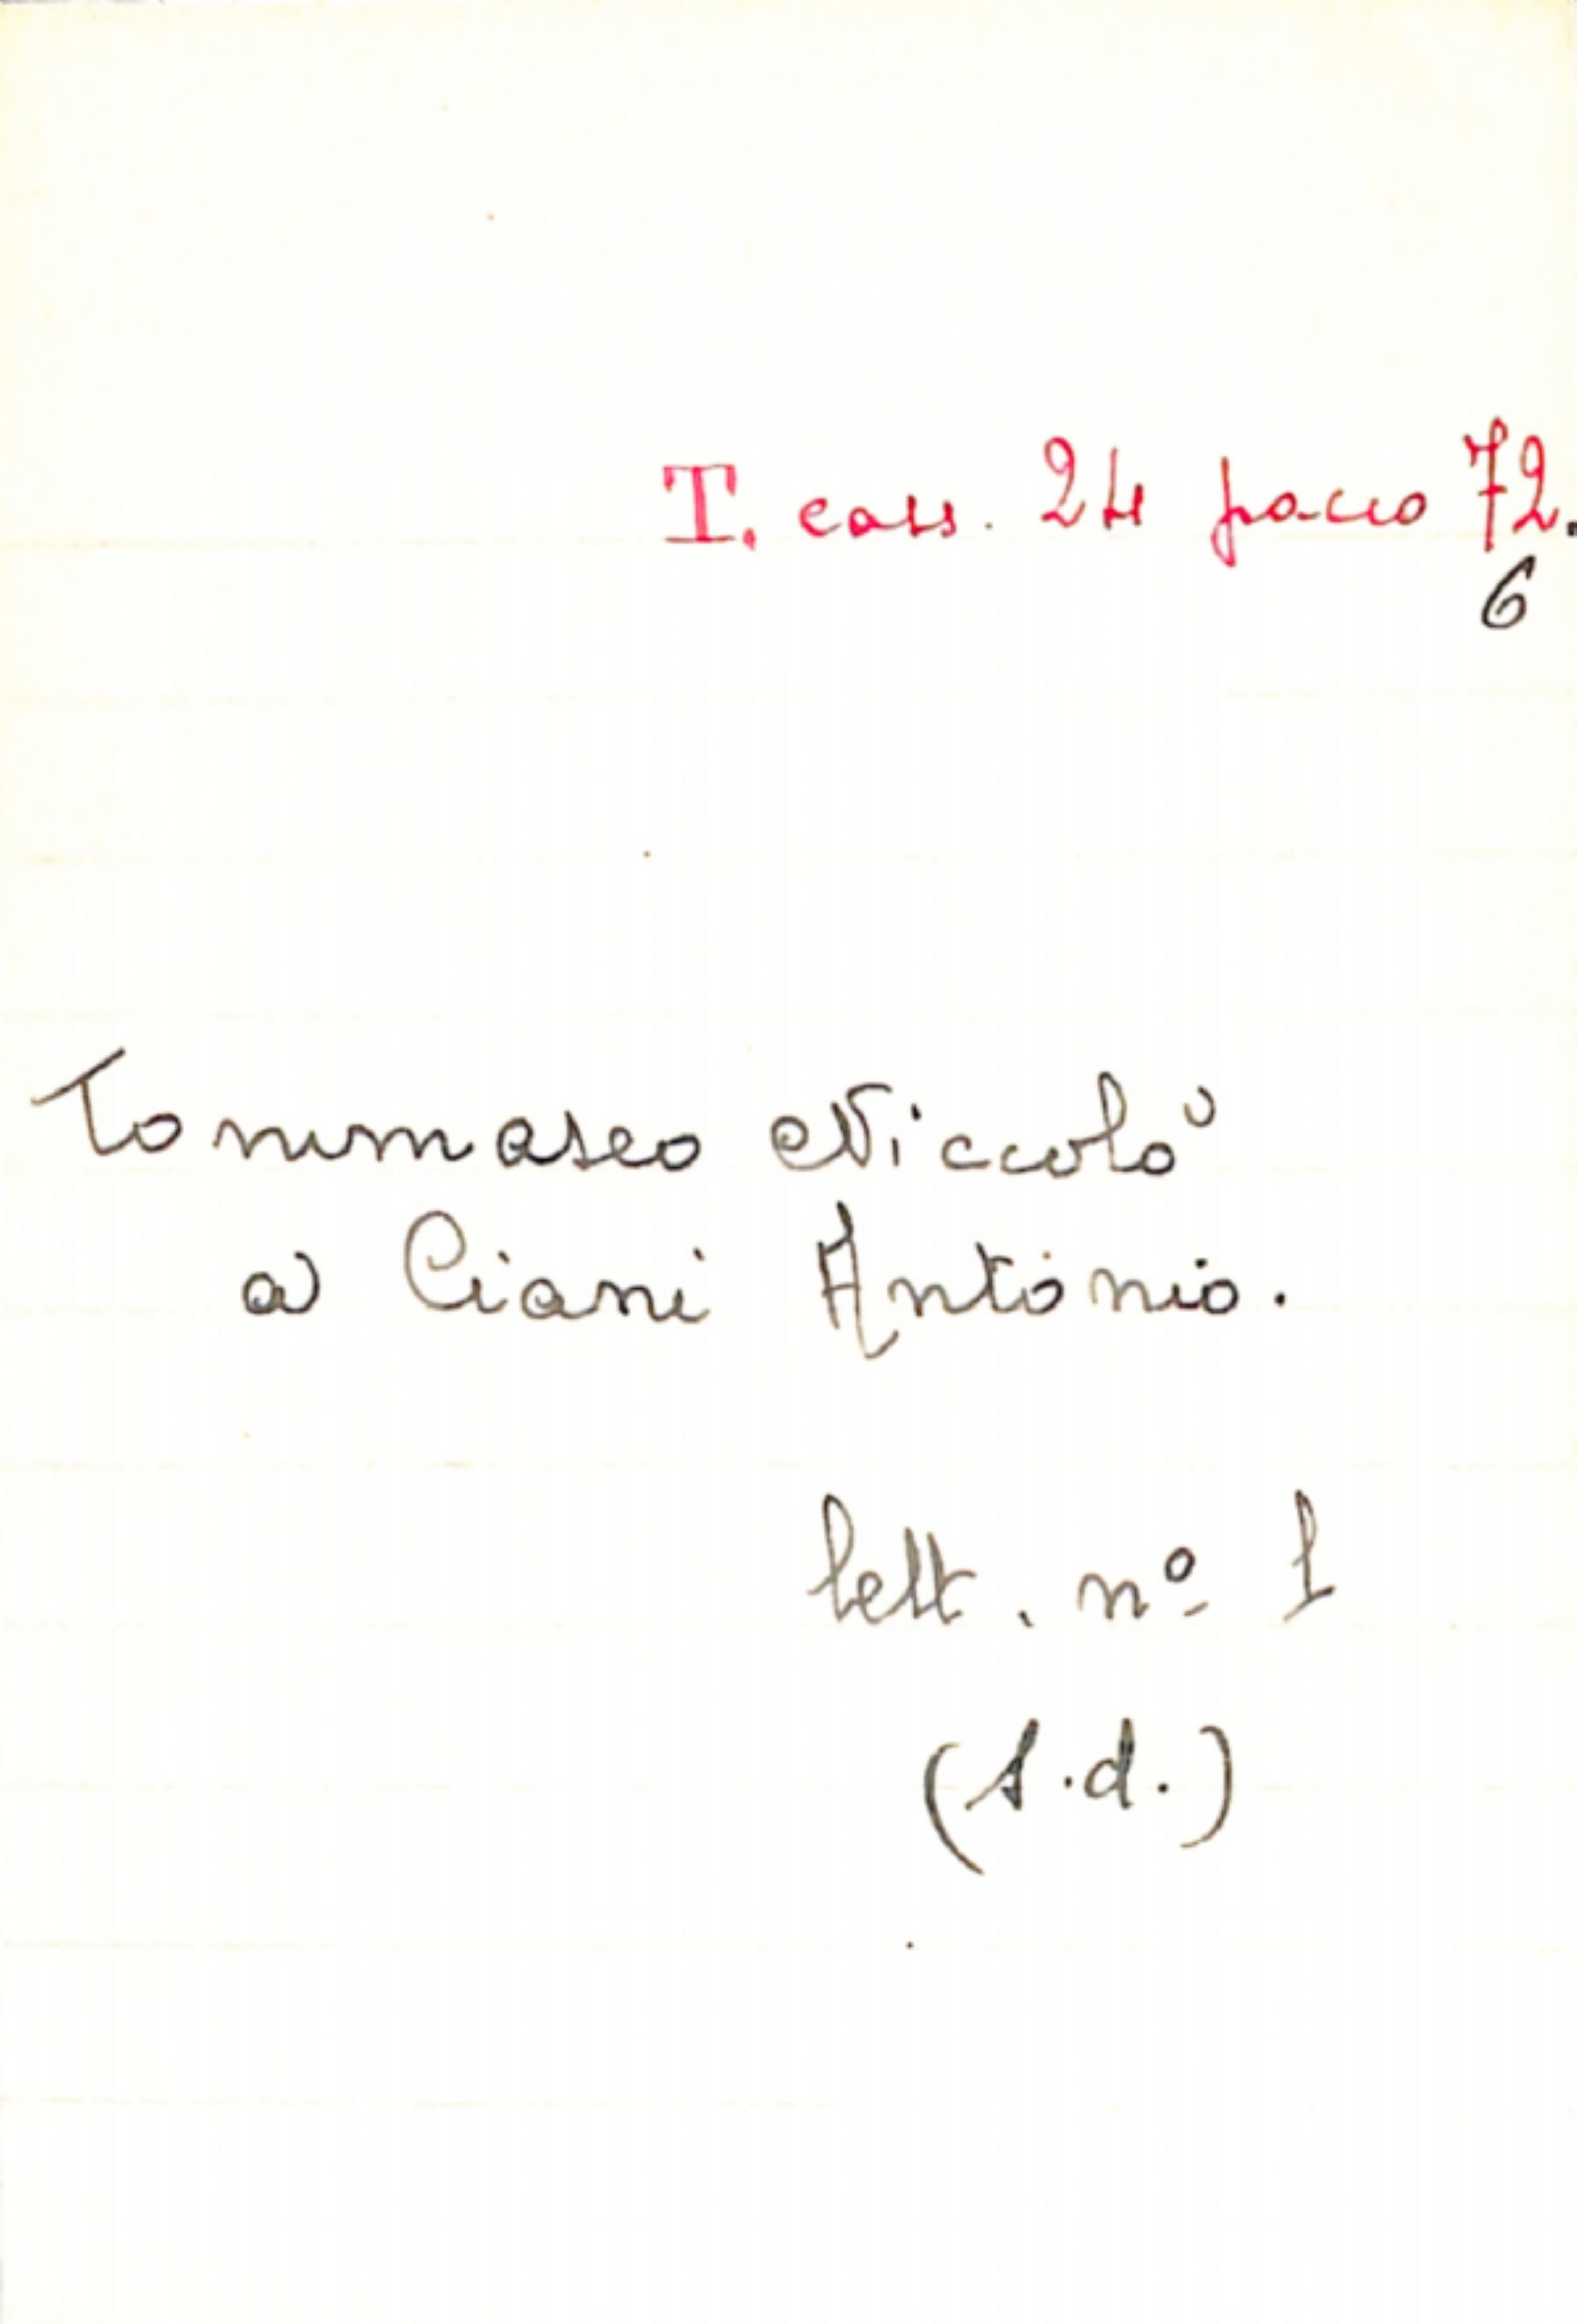 T. cass. 24 pacco 72.
6
Tommaseo Niccolò
a Ciani Antonio.
lett. nº 1
(s.d.)